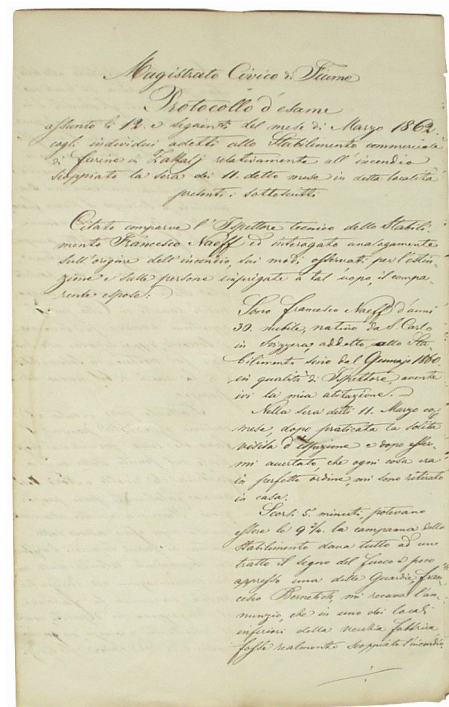 Magistrato Civico di Fiume
Protocollo d'esame
assunto li 12. e seguenti del mese di Marzo 1862.
cogli individui addetti allo Stabilimento commerciale
di farine in Zakalj relativamente all'incendio
scoppiato la sera dei 11 detto mese in detta località
presenti i sottoscritti
Citato comparve l'Ispettore tecnico dello Stabili-
mento Francesco Naeff ed interogato analogamente
sull'origine dell'incendio, sui modi osservati per l'estin-
zione e sulle persone impiegate a tal uopo, il compa-
rente espose:
Sono Francesco Naeff d'anni
39. nubile, nativo da S. Carlo
in Svizzera, addetto allo Sta-
bilimento sino dal Gennajo 1860
in qualità di Ispettore, avente
ivi la mia abitazione. —
Nella sera detti 11. Marzo co-
mese, dopo praticata la solita
visita d'ispezione e dopo esser-
mi accertato, che ogni cosa era
in perfetto ordine mi sono ritirato
in casa.
Scorsi 5. minuti, potevano
essere le 9 la campana dello
Stabilimento dava tutto ad un
tratto il segno del fuoco e poco
appresso una delle Guardie, Fran-
cesco mi recava l'an-
nunzio, che in uno dei locali
inferiori della vecchia fabbrica
fosse realmente scoppiato l'incendio.